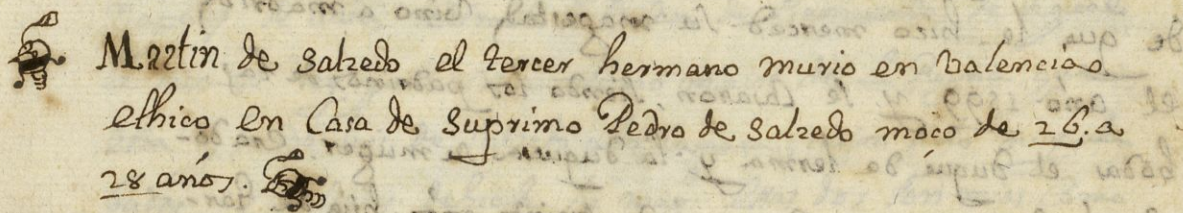 Martin de Salzedo el tercer hermano murio en Valencia
ethico en Casa de suprimo Pedro de Salzedo moço de 26. a
28 anós.